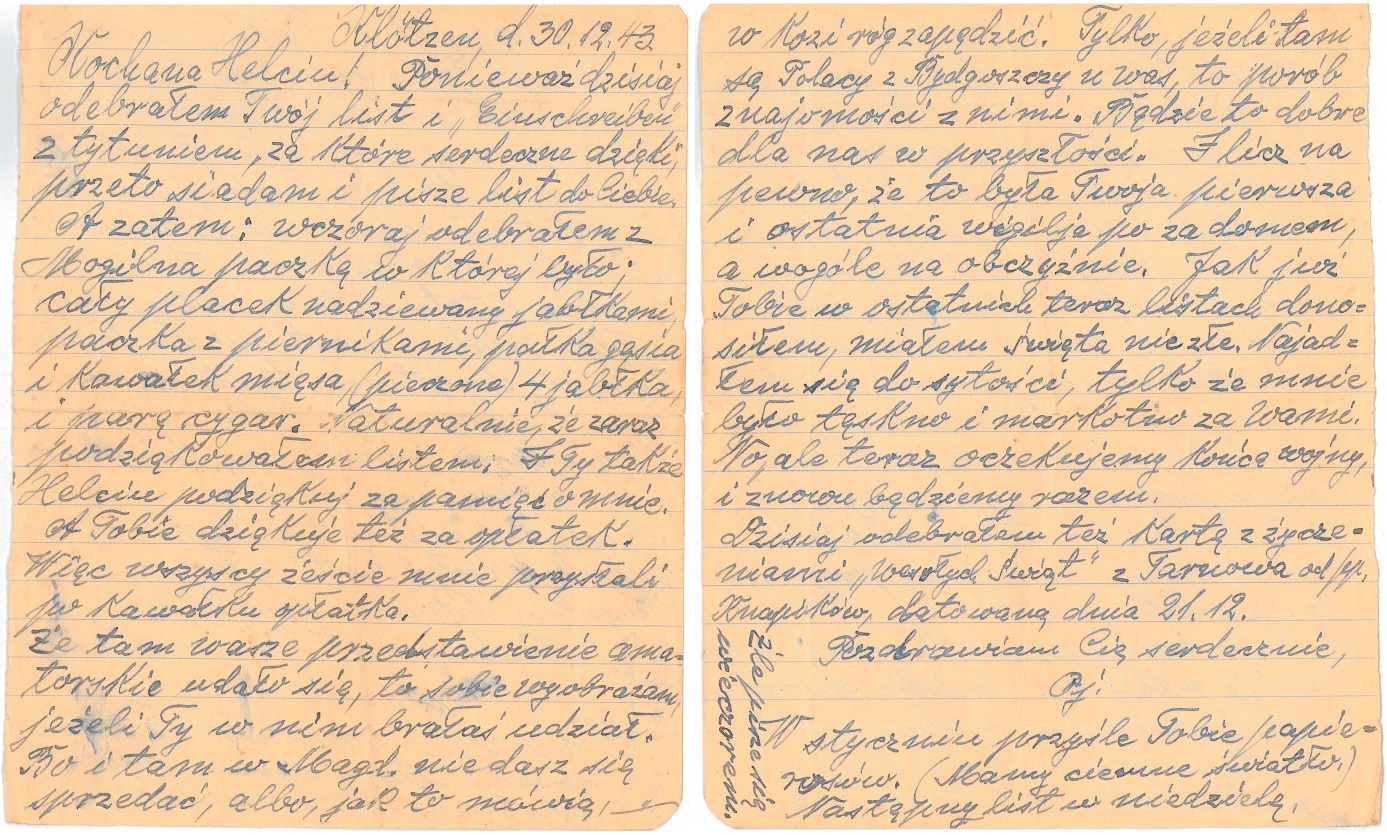 Klötzen, d. 30.12.43.
Kochana Helciu! Ponieważ dzisiaj
odebrałem Twój list i „Einschreiben"
z tytuniem, za które serdeczne dzięki,
przeto siadam i pisze list do Ciebie.
A zatem: wczoraj odebrałem z
Mogilna paczką w której było;
cały placek nadziewany jabłkami,
paczka z piernikami, pałka gąsia
i kawałek mięsa (pieczone) 4 jabłka,
i parę cygar. Naturalnie, że zaraz
podziąkowałem listem; I Ty także
Helciu podziąkuj za pamięć o mnie.
A Tobie dziąkuje też za opłatek.
Wiąc wszyscy żeście mnie przysłali
po kawałku opłatka.
Że tam wasze przedstawienie ama=
torskie udało się, to sobie wyobrażam,
jeżeli Ty w nim brałaś udział.
Bo i tam w Magd. nie dasz się
sprzedać, albo, jak to mówią, —
w kozi róg zapędzić. Tylko, jeżeli tam
są Polacy z Bydgoszczy u was, to porób
znajomości z nimi. Będzie to dobre
dla nas w przyszłości. I licz na
pewno, że to była Twoja pierwsza
i ostatnia wigilja po za domem,
a wogóle na obczyźnie. Jak już
Tobie w ostatnich teraz listach dono=
siłem, miałem Święta niezłe. Najad=
łem się do sytości, tylko że mnie
było tąskno i markotno za Wami.
No, ale teraz oczekujemy końca wojny,
i znowu będziemy razem.
Dzisiaj odebrałem też kartą z życze=
niami „Wesołych Świąt" z Tarnowa od pp.
Knapików, datowaną dnia 21.12.
Pozdrawiam Cię serdecznie,
W styczniu przyśle Tobie papie=
rosów. (Mamy ciemne światło.)
Następny list w niedzielę.
Źle pisze się
wieczorem.